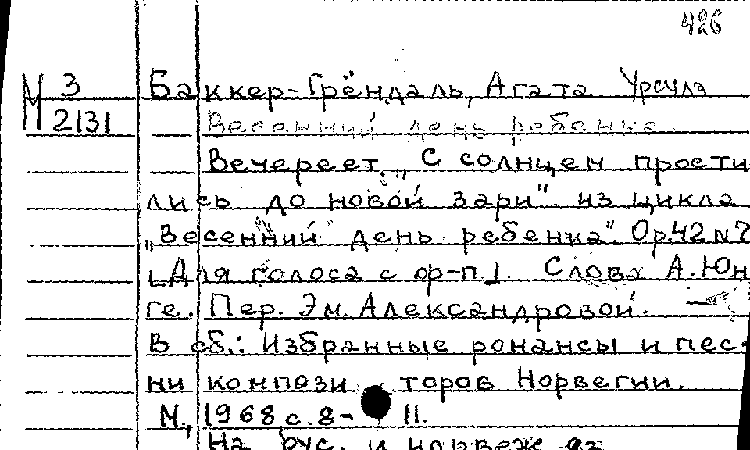 426
М 3 Баккер-Грёндаль, Агата Урсула
2131 Весенний день ребенка
Вечереет. „С солнцем прости
лись до новой зари" из цикла
„Весенний день ребенка". Op.42 N7
[Для голоса с ф-п.]. Слова А. Юн
ге. Пер. Эм. Александровой.
В сб.: Избранные романсы и пес-
ни компози торов Норвегии.
М., 1968 с. 8- 11.
На рус. и норвеж. яз.